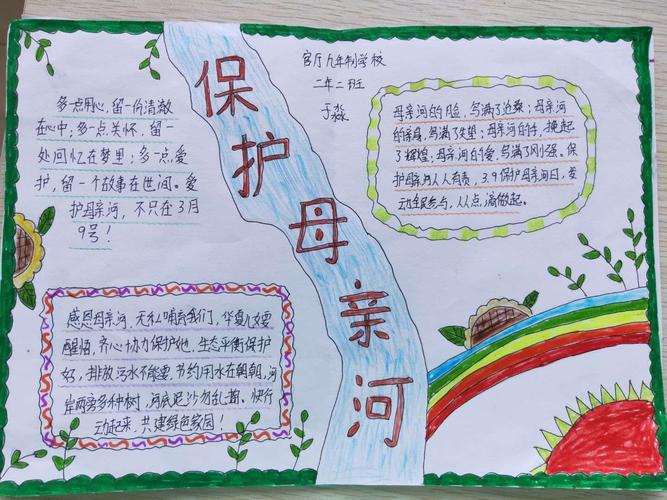 保护母亲河
官厅九年制学校
二年二班
于淼
多一点用心,留一份清澈
在心中;多一点关怀,留一
处回忆在梦里;多一点爱
护,留一个故事在世间。爱
护母亲河,不只在3月
9号!
母亲河的脸,写满了沧桑;母亲河
的亲身,写满了失望;母亲河的
了辉煌;母亲河的爱,写满了刚强。保
护母亲河人人有责,3.9保护母亲河日,发
动全民参与,从点滴做起。
感恩母亲河,无私哺育我们,华夏儿女要
醒悟,齐心协力保护她,生态平衡保护
好,排放污水不能要,节约用水在朝朝,河
岸两旁多种树,河底泥沙勿乱掏。快行
动起来,共建绿色家园!